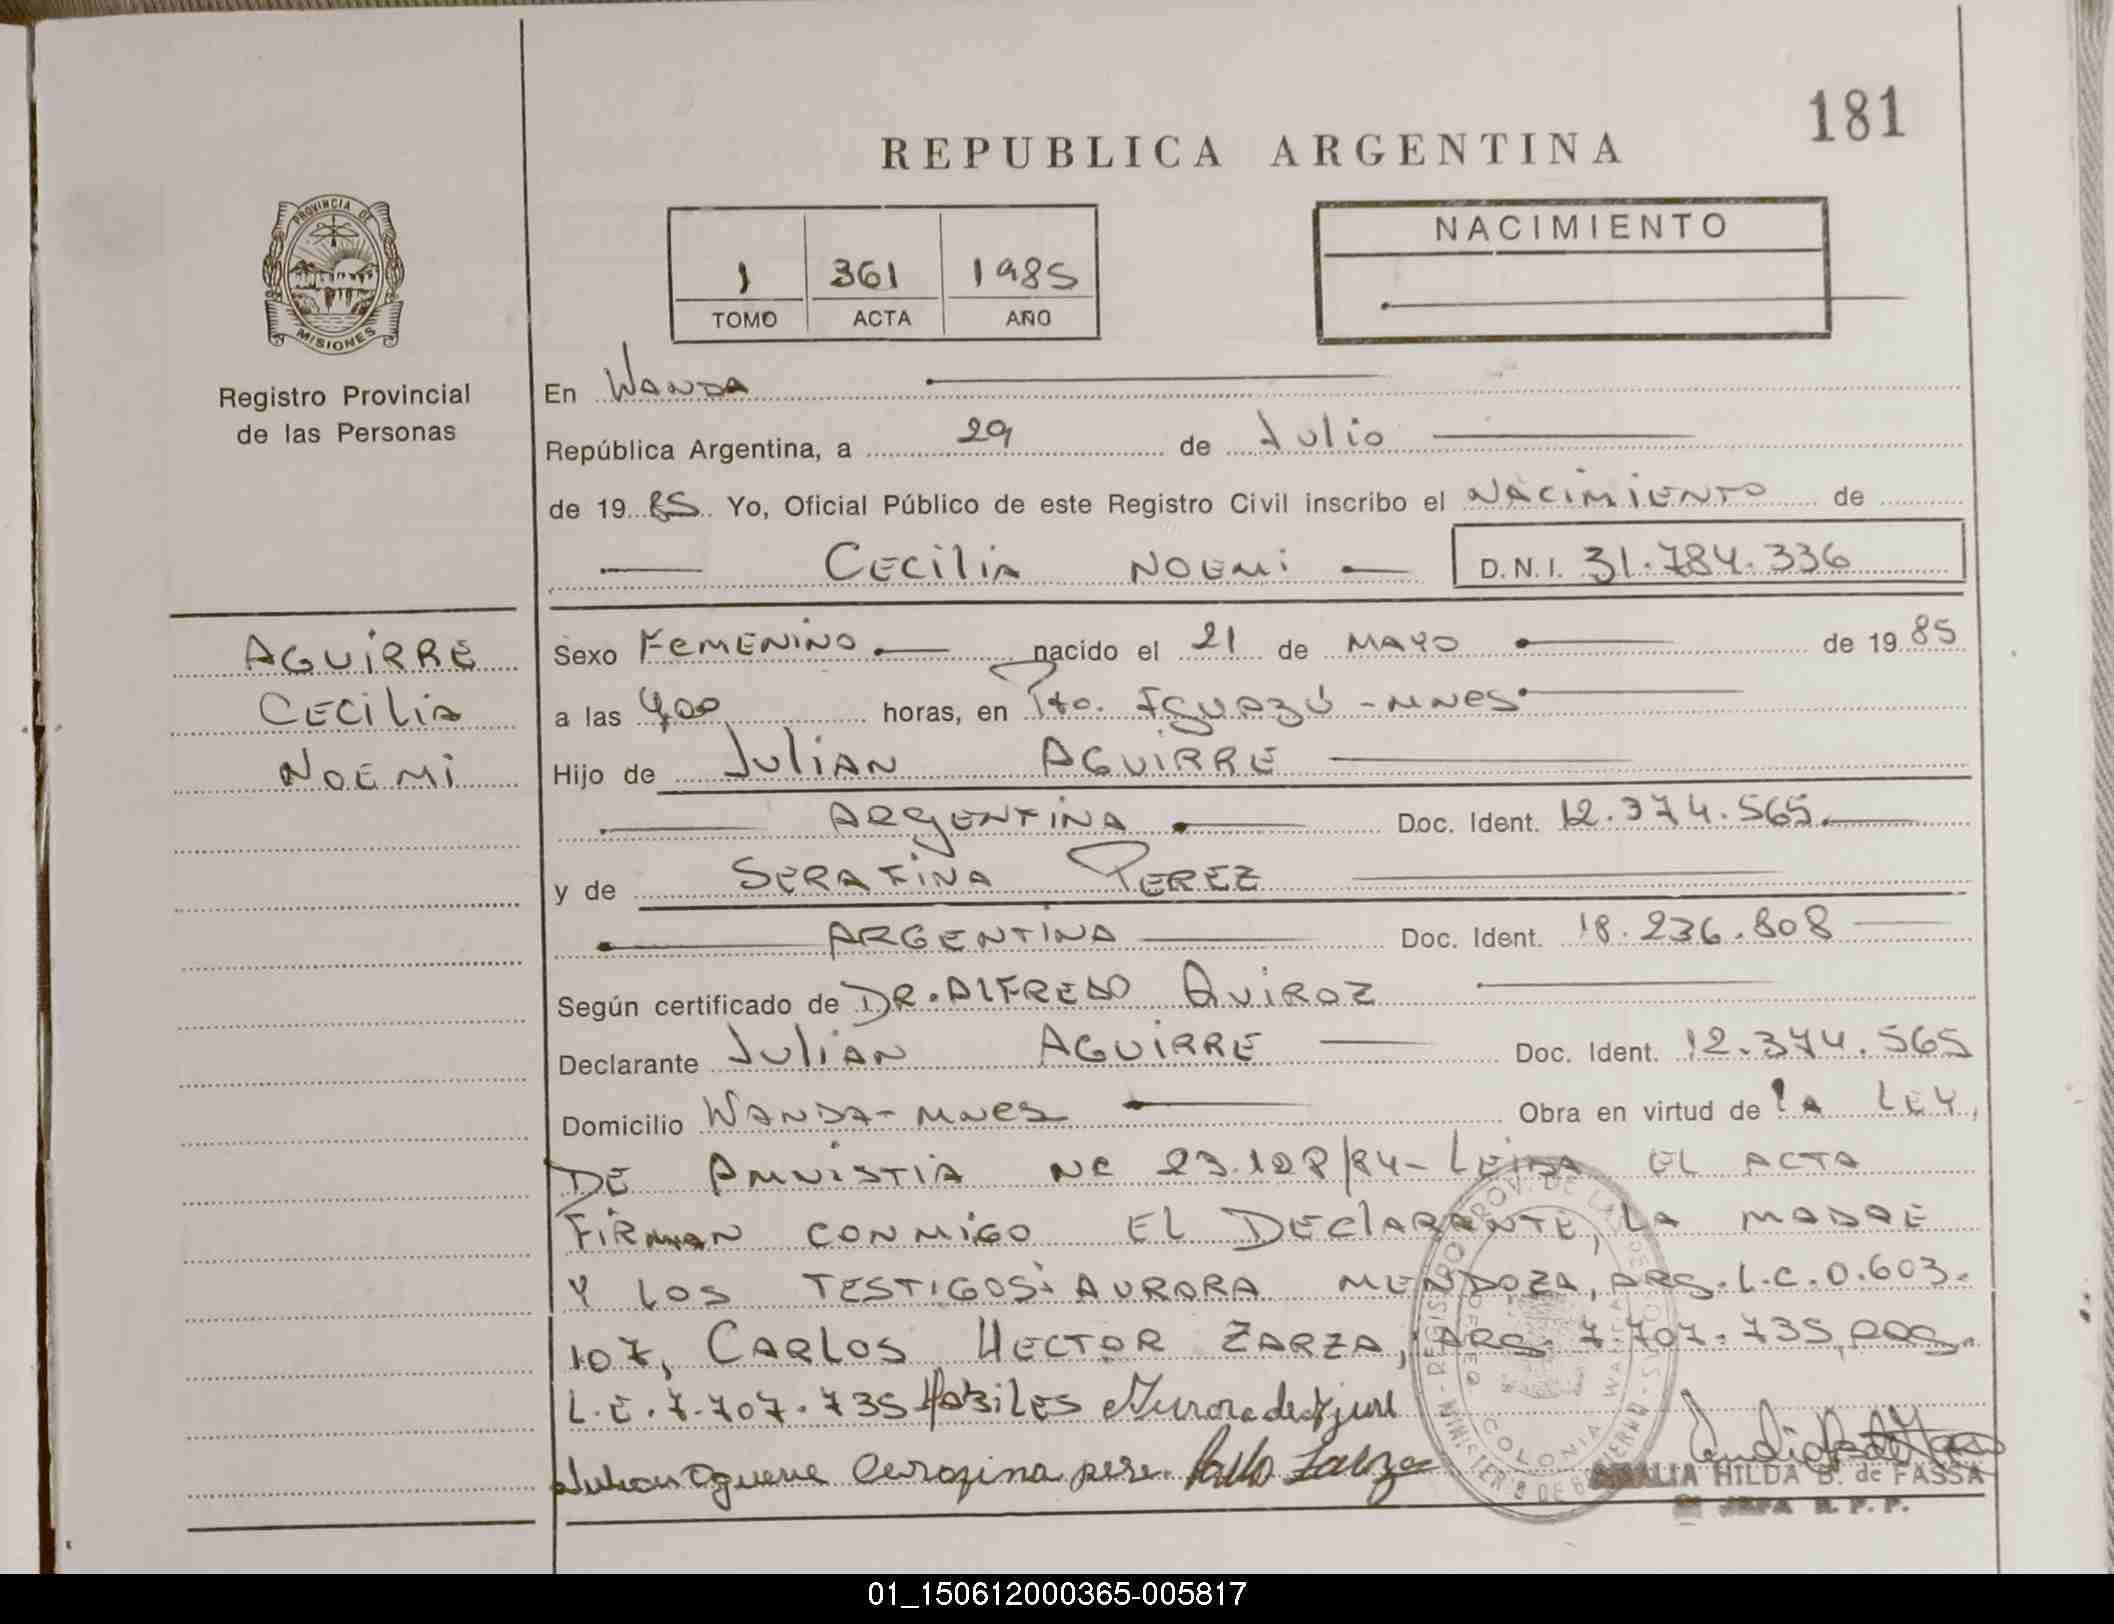 181
REPUBLICA ARGENTINA
PROVINCIA DE
MISIONES
Registro Provincial
de las Personas
1 361 1985
TOMO ACTA AÑO
NACIMIENTO
En WANDA
República Argentina, a 29 de Julio
de 1985 Yo, Oficial Público de este Registro Civil inscribo el NACIMIENTO de
CECILIA NOEMI D.N.I. 31.784.336
AGUIRRE
CECILIA
NOEMI
Sexo FEMENINO nacido el 21 de MAYO de 1985
a las 4,00 horas, en Pto. IGUAZÚ - MNES
Hijo de JULIAN AGUIRRE
ARGENTINA Doc. Ident. 12.374.565
y de SERAFINA PEREZ
ARGENTINA Doc. Ident. 18.236.808
Según certificado de DR. ALFREDO QUIROZ
Declarante JULIAN AGUIRRE Doc. Ident. 12.374.565
Domicilio WANDA - MNES Obra en virtud de LA LEY,
DE AMNISTIA 84 - LEIDA EL ACTA
FIRMAN CONMIGO EL DECLARANTE, LA MADRE
Y LOS TESTIGOS: AURORA MENDOZA, ARG. L.C. 0.603.
107, CARLOS HECTOR ZARZA, ARG. 7.707.735,
L.E. 7.707.735 HABILES
AMALIA HILDA B. de FASSA
JEFA R.P.P.
COLONIA WANDA
01_150612000365-005817